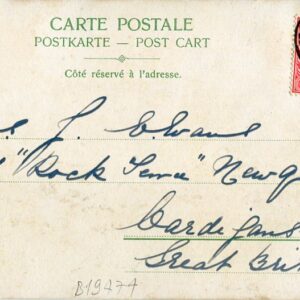 CARTE POSTALE
POSTKARTE — POST CART
Côté réservé à l'adresse.
s J. Evans
"Rock Terra" Newq
Cardigans
Great Bri
B19474